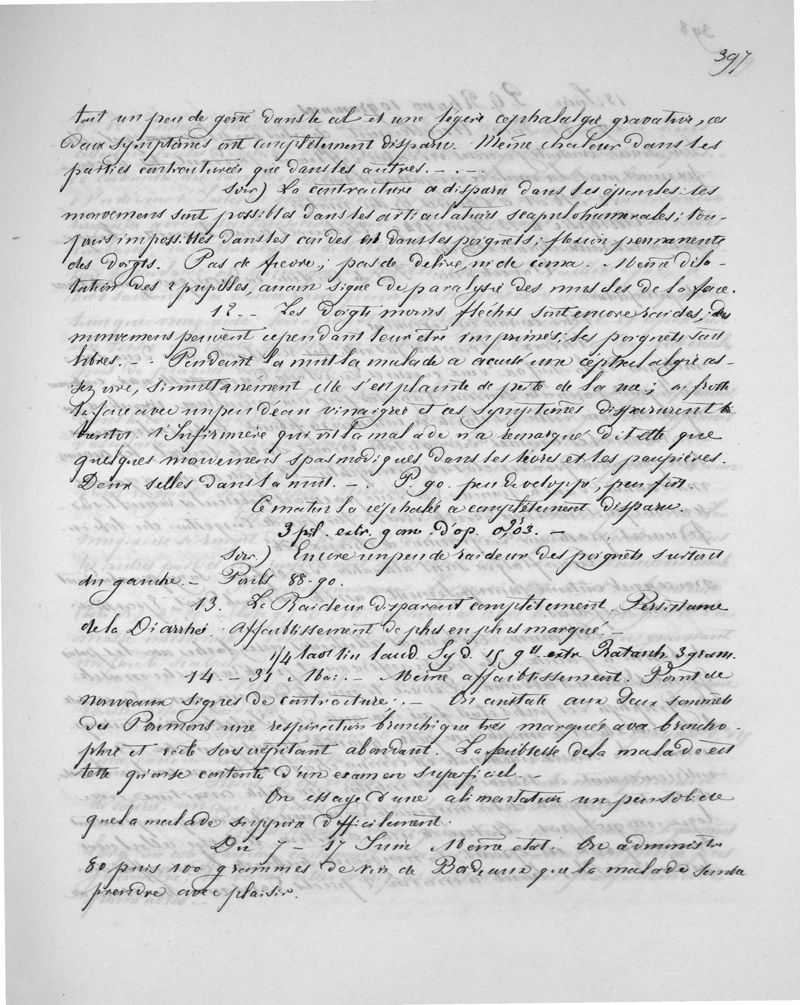 397
tout un peu de gêne dans le col et une légère céphalalgie gravative, ces
deux symptômes ont complètement disparu. Même chaleur dans les
parties contracturées que dans les autres. - . -
Soir) La contracture a disparu dans les épaules: les
mouvemens sont possibles dans les articulations scapulohumérales; tou-
jours impossibles dans les coudes et dans les poignets; flexion permanente
des doigts. Pas de fièvre; pas de délire, ni de coma. Même dila-
tation des 2 pupilles, aucun signe de paralysie des muscles de la face.
12. - Les doigts moins fléchis sont encore raides; des
mouvemens peuvent cependant leur être imprimés; les poignets sont
libres. - . Pendant la nuit la malade a accusé une céphalalgie as-
sez vive, simultanément elle s'est plainte de perte de la vue; on frotta
la face avec un peu d'eau vinaigrée et ces symptômes disparurent
bientôt. l'Infirmière qui vit la malade n'a remarqué dit elle que
quelques mouvemens spasmodiques dans les lèvres et les paupières.
Deux selles dans la nuit. - . P. 90. peu développé, peu fort.
Ce matin la céphalée a complètement disparu.
3 pil. extr. gom. d'op. 0,03. -
Soir) Encore un peu de raideur des poignets surtout
du gauche. - Pouls 88-90.
13. La Raideur disparait complètement. Persistance
de la Diarrhée. affaiblissement de plus en plus marqué. -
1/4 lav. lin laud. Syd. 15 gtt extr. Ratanh. 3 gram.
14. - 31 Mai. - Même affaiblissement. Point de
nouveaux signes de contracture. - On constate aux deux sommets
des Poumons une respiration bronchique très marquée avec broncho-
phie et râle souscrépitant abondant. La faiblesse de la malade est
telle qu'on se contente d'un examen superficiel. -
On essaye d'une alimentation un peu solide
que la malade supporte difficilement.
Du 7 - 17 Juin Même état. On administre
80 puis 100 grammes de vin de Bordeaux que la malade semble
prendre avec plaisir.